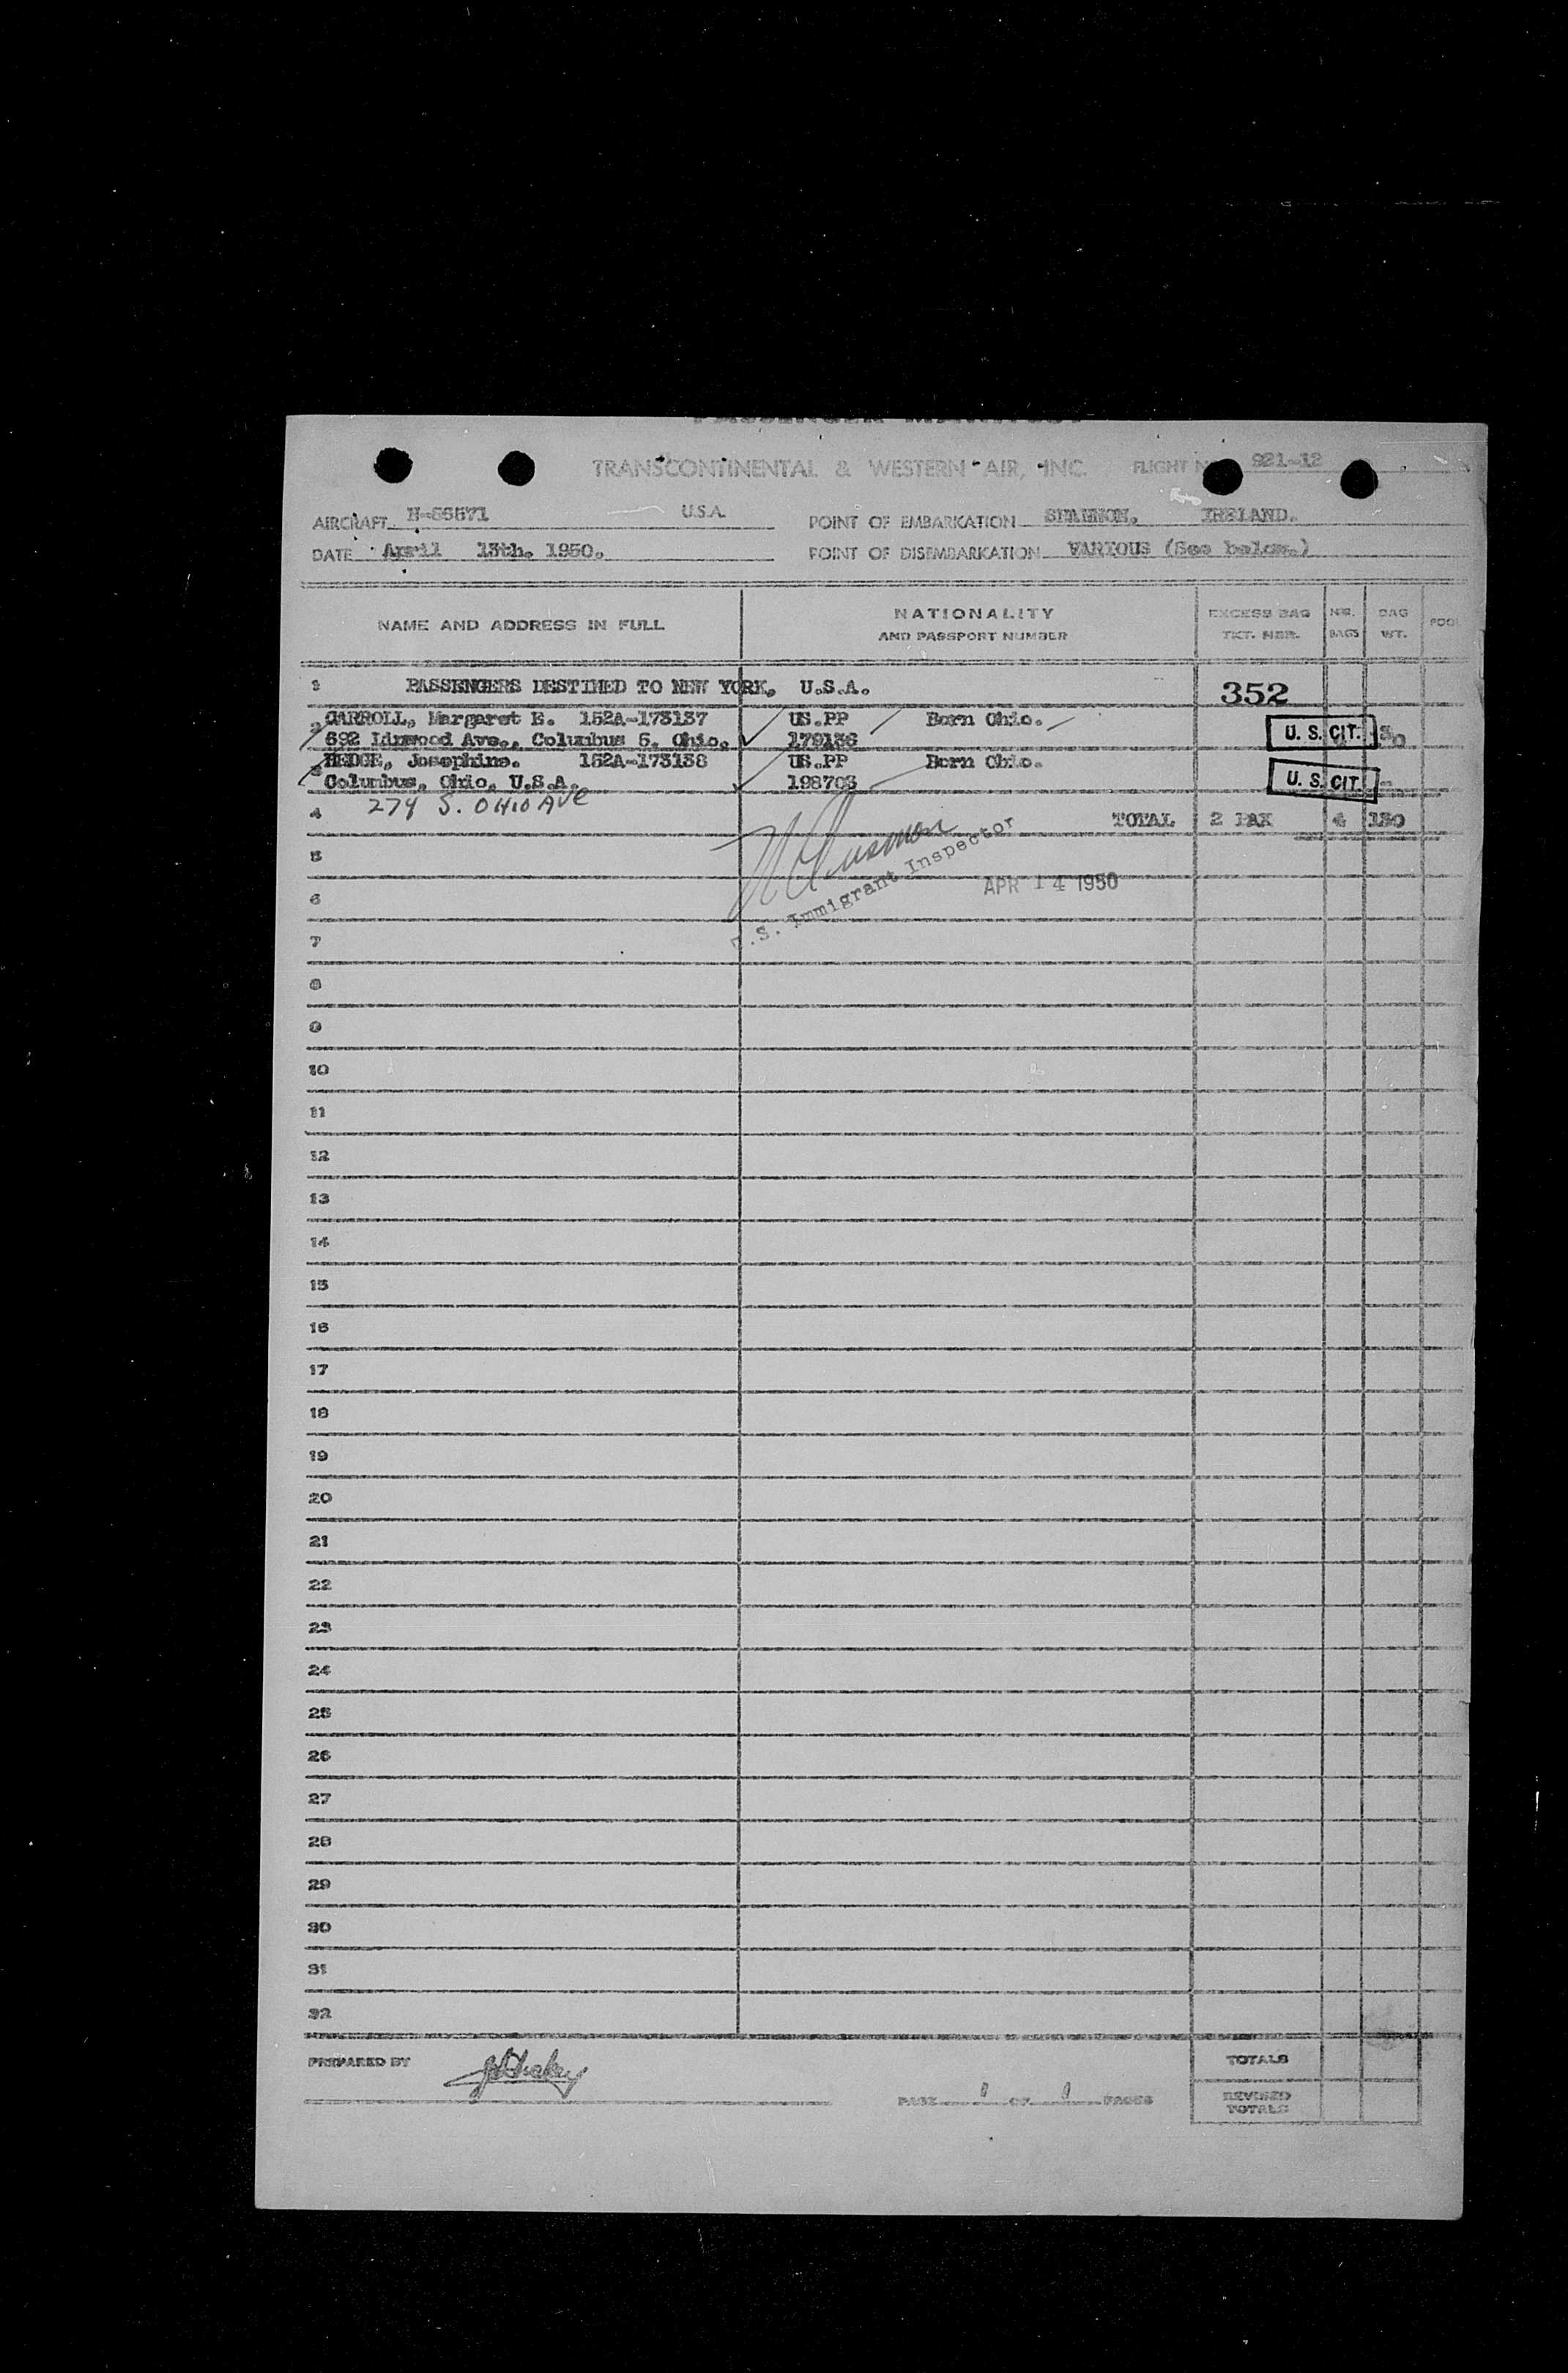 PASSENGER MANIFEST
TRANSCONTINENTAL & WESTERN AIR, INC. FLIGHT N 921-12
AIRCRAFT U.S.A. POINT OF EMBARKATION SHANNON, IRELAND.
DATE April 13th. 1950. POINT OF DISEMBARKATION VARIOUS (See below.)
NAME AND ADDRESS IN FULL NATIONALITY AND PASSPORT NUMBER EXCESS BAG TKT. NBR. NBR. BAGS BAG WT.
1 PASSENGERS DESTINED TO NEW YORK, U.S.A. 352
2 CARROLL, Margaret E. 152A-173137 US.PP Born Ohio.
692 Ave., Columbus 5. Ohio. 179136 U. S. CIT.
3 HEDGE, Josephine. 152A-173138 US.PP Born Ohio.
Columbus, Ohio, U.S.A. 198703 U. S. CIT.
4 274 S. OHIO AVE
TOTAL 2 PAX 4 130
5
U.S. Immigrant Inspector
6 APR 14 1950
7
8
9
10
11
12
13
14
15
16
17
18
19
20
21
22
23
24
25
26
27
28
29
30
31
32
PREPARED BY TOTALS
PAGE 1 OF 1 PAGES REVISED TOTALS